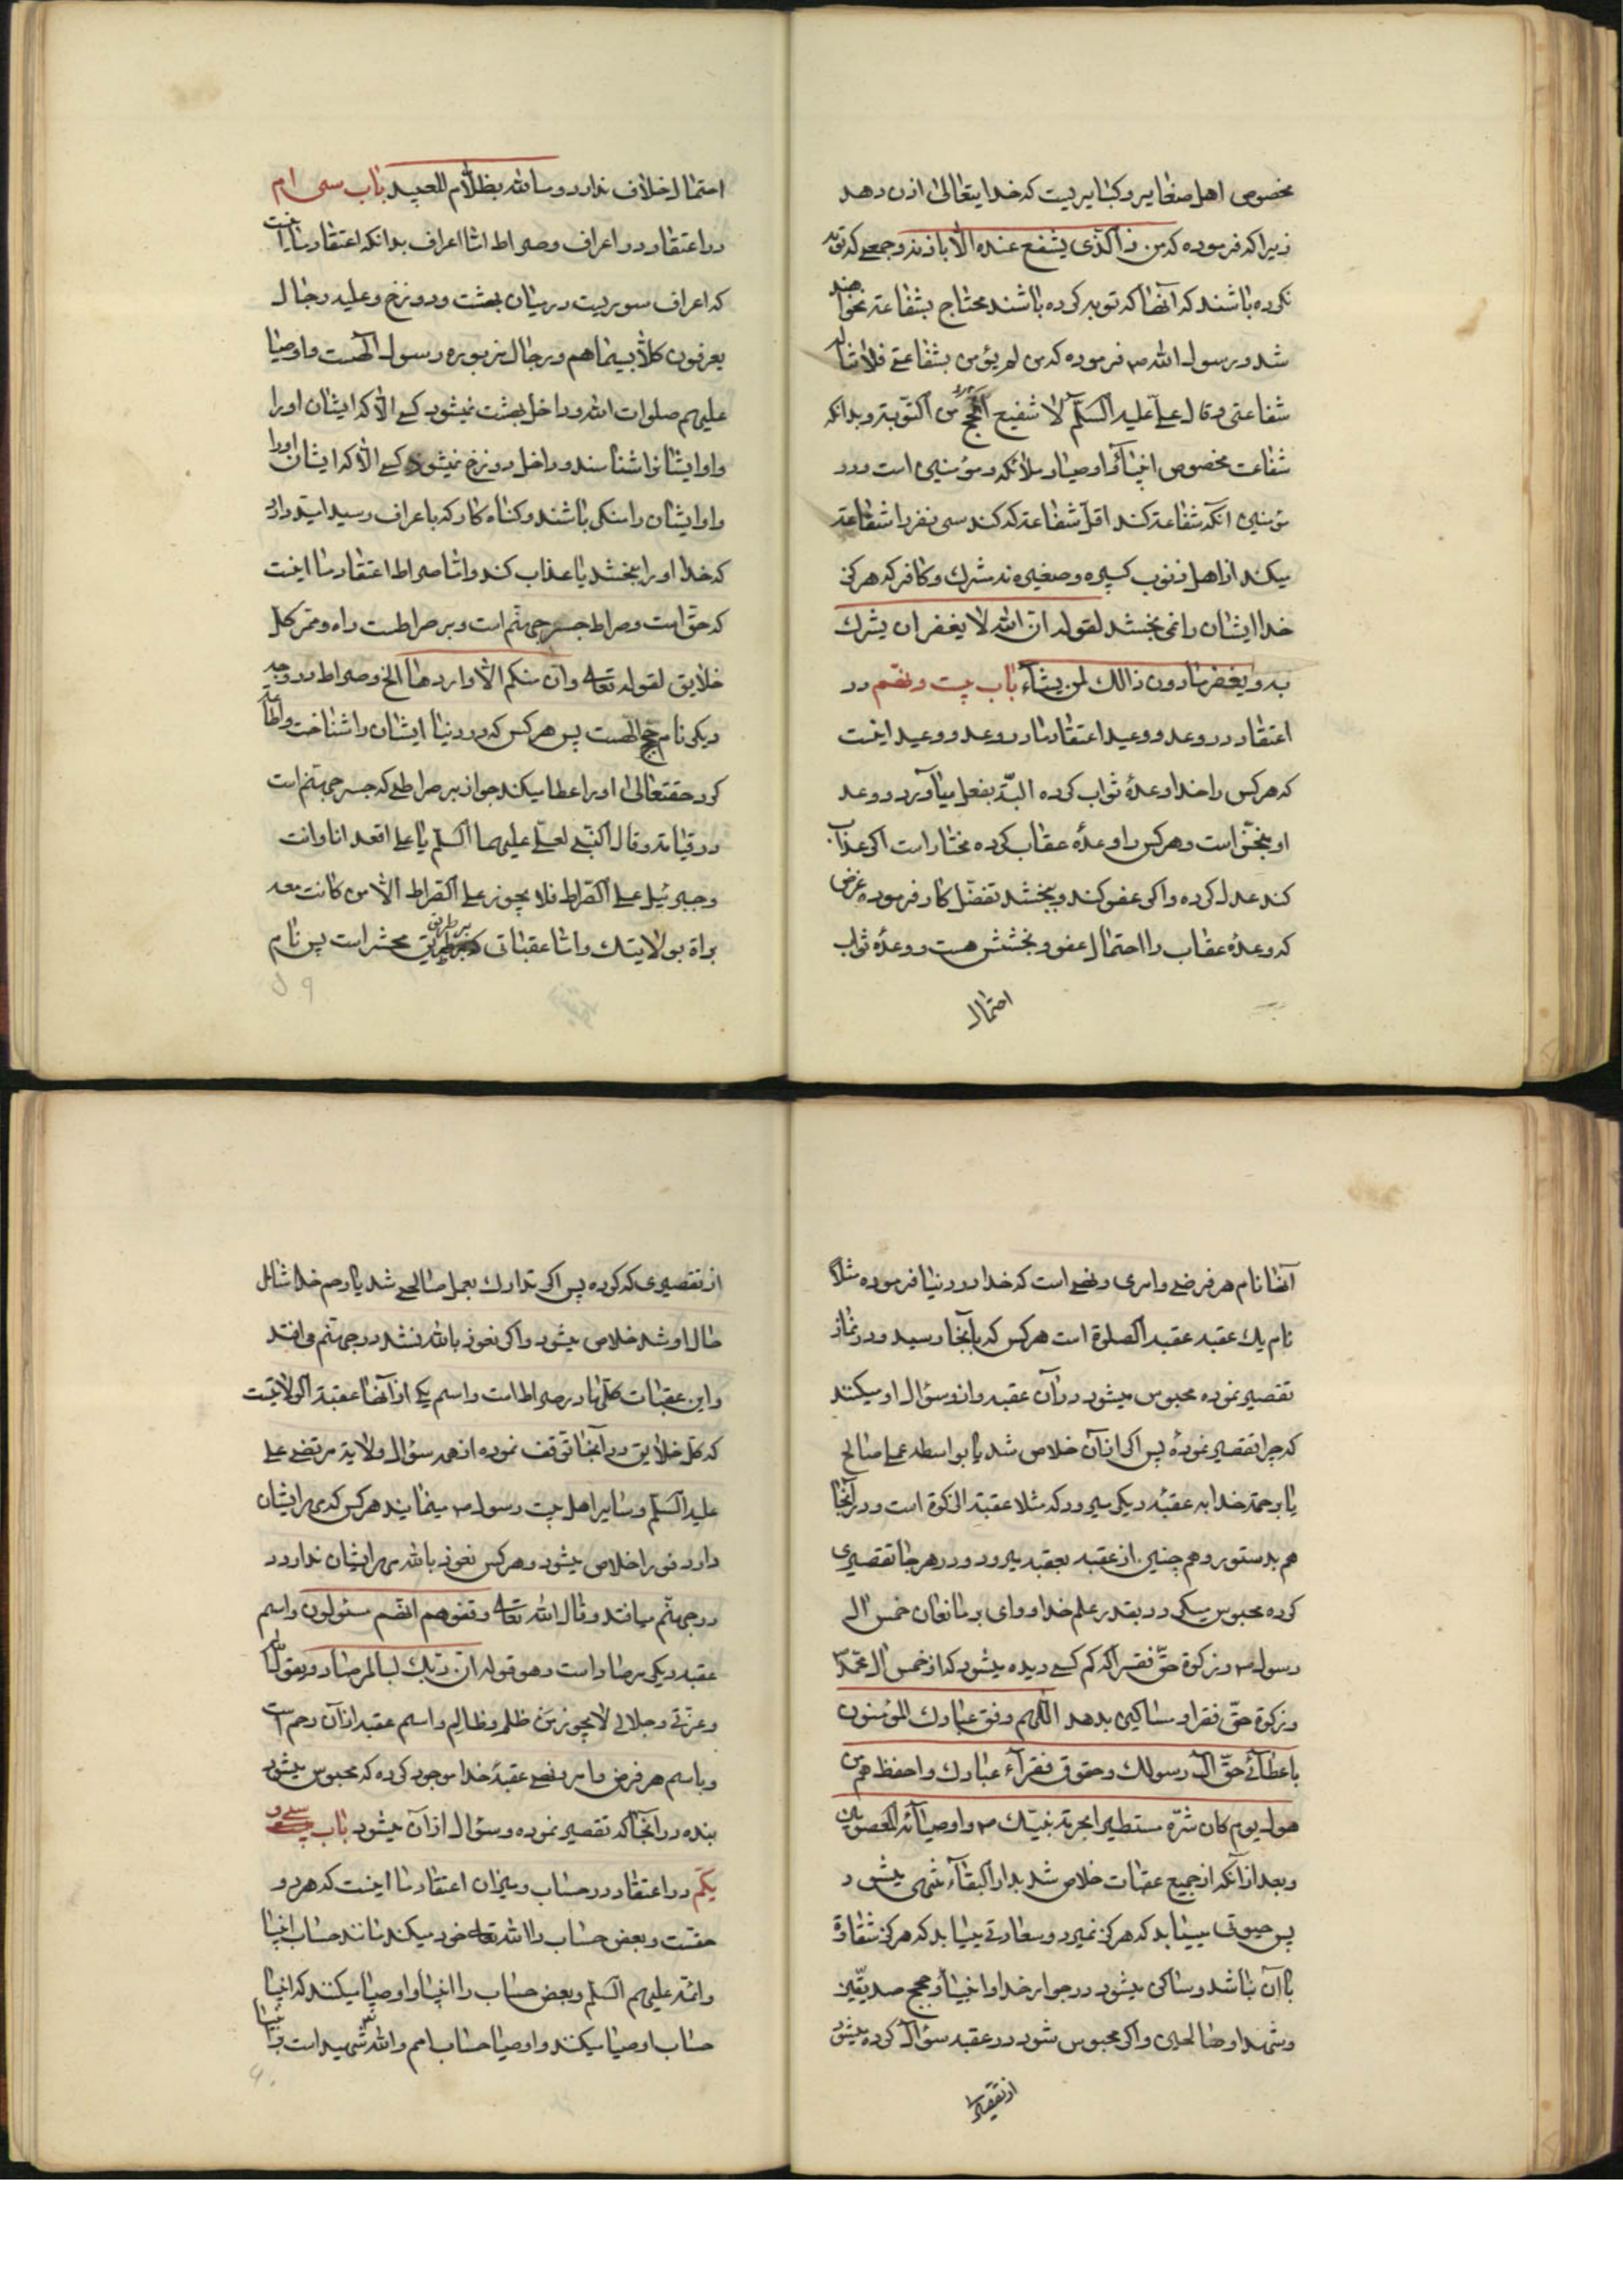 مخصوص اهل صغایر و کبایر یست که خدایتعالی اذن دهد
زیرا که فرموده که من ذا الذی یشفع عنده الا باذنه و جمعی که توبه
نکرده باشند که آنها که توبه کرده باشند محتاج بشفاعة نخواهند
شد و رسول الله ص فرموده که من لم یؤمن بشفاعتی فلا اناله
شفاعتی و قال علی علیه السلم لا شفیع انجح من التوبة و بدانکه
شفاعت مخصوص انبیاء و اوصیا و ملائکه و مؤمنین است و در
مؤمنین انکه شفاعة کند اقل شفاعة که کند سی نفر را شفاعة
میکند از اهل ذنوب کبیره و صغیره نه مشرک و کافر که هرگز
خدا ایشان را نمی بخشد لقوله ان الله لا یغفر ان یشرک
به و یغفر مادون ذالک لمن یشاء باب بیست و نهم در
اعتقاد در وعد و وعید اعتقاد ما در وعد و وعید اینست
که هر کس را خدا وعدهٔ ثواب کرده البته بفعل میآورد و وعد
او منجز است و هر کس را وعدهٔ عقاب کرده مختار است اگر عذاب
کند عدل کرده و اگر عفو کند و ببخشد تفضل کار فرموده غرض
که وعدهٔ عقاب را احتمال عفو و بخشش هست و وعدهٔ ثواب
احتمال
احتمال اخلاف ندارد و ما الله بظلام للعبید باب سی ام
در اعتقاد در اعراف و صراط اما اعراف بدانکه اعتقاد ما اینست
که اعراف سوریست درمیان بهشت و دوزخ و علیه رجال
یعرفون کلا بسیماهم و رجال مزبوره رسول آلهست و اوصیا
علیهم صلوات الله و داخل بهشت نمیشود کسی الا که ایشان او را
و او ایشانرا شناسند و داخل دوزخ نمیشود کسی الا که ایشان او را
و او ایشان را منکر باشند و گناه کار که باعراف رسید امید دارد
که خدا او را ببخشد یا عذاب کند و اما صراط اعتقاد ما اینست
که حق است و صراط جسر جهنم است و بر صراطست راه و ممر کل
خلایق لقوله تعالی وان منکم الا واردها الخ و صراط در وجه
دیگر نام حجج الهست پس هر کس که در دنیا ایشان را شناخت و اطاعة
کرد حقتعالی او را عطا میکند جواز بر صراطی که جسر جهنم است
در قیامة و قال النبی لعلی علیهما السلم یا علی اقعد انا و انت
و جبرئیل علی الصراط فلا یجوز علی الصراط الا من کانت معه
براة بولایتک و اما عقباتی که بر طریق محشر است پس نام
آنها نام هر فرضی و امری و نهی است که خدا در دنیا فرموده مثلا
نام یک عقبه عقبه الصلوة است هر کس که بانجا رسید و در نماز
تقصیر نموده محبوس میشود در آن عقبه و ازو سؤال او میکنند
که چرا تقصیر نمودهٔ پس اگر از آن خلاص شد یا بواسطه عمل صالح
یا برحمة خدا به عقبهٔ دیگر میرود که مثلا عقبة الزکوة است و در آنجا
هم بدستور و هم چنین از عقبه بعقبه میرود و در هر جا تقصیری
کرده محبوس میگردد بقدر علم خدا و وای بر مانعان خمس آل
رسول ص و زکوة حق فقرا که کم کسی دیده میشود که از خمس آل محمد
و زکوة حق فقرا و مساکین بدهد اللهم وفق عبادک المؤمنون
باعطائی حق آل رسولک و حقوق فقراء عبادک و احفظهم من
هول یوم کان شره مستطیرا بحرمة نبیک ص و اوصیائه المعصومین
و بعد از آنکه از جمیع عقبات خلاص شد بدار البقاء منتهی میشود
پس حیوتی مییابد که هرگز نمیرد و سعادتی مییابد که هرگز شقاوة
با آن نباشد و ساکن میشود در جوار خدا و انبیا و حجج صدیقین
و شهدا و صالحین و اگر محبوس شود در عقبه سؤال کرده میشود
از تقصیر
از تقصیری که کرده پس اگر تدارک بعمل صالحی شد یا رحم خدا شامل
حال او شد خلاص میشود و اگر نعوذ بالله نشد در جهنم می افتد
و این عقبات کلها در صراط است و اسم یکی از آنها عقبة الولایتست
که کل خلایق در آنجا توقف نموده از همه سؤال ولایة مرتضی علی
علیه السلم و سایر اهل بیت رسول ص مینمایند هر کس که مهر ایشان
دارد فورا خلاص میشود و هر کس نعوذ بالله مهر ایشان ندارد
در جهنم میافتد و قال الله تعالی وقفوهم انهم مسئولون و اسم
عقبه دیگر مرصاد است و هو قوله ان ربک لبالمرصاد و یقول الله
و عزتی و جلالی لا یجوز من ظلم و ظالم و اسم عقبه از آن رحم است
و باسم هر فرض و امر و نهی عقبهٔ خدا موجود کرده که محبوس میشود
بنده در آنجا که تقصیر نموده و سؤال از آن میشود باب سی و
یکم در اعتقاد در حساب و میزان اعتقاد ما اینست که هر دو
حقست و بعض حساب را الله تعالی خود میکند مانند حساب انبیا
و ائمه علیهم السلم و بعض حساب را انبیا و اوصیا میکنند که انبیا
حساب اوصیا میکنند و اوصیا حساب امم و الله شهید است بر انبیا